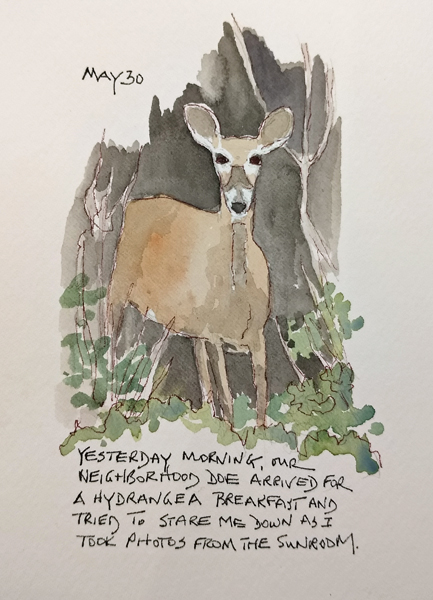 MAY 30
YESTERDAY MORNING, OUR
NEIGHBORHOOD DOE ARRIVED FOR
A HYDRANGEA BREAKFAST AND
TRIED TO STARE ME DOWN AS I
TOOK PHOTOS FROM THE SUNROOM.